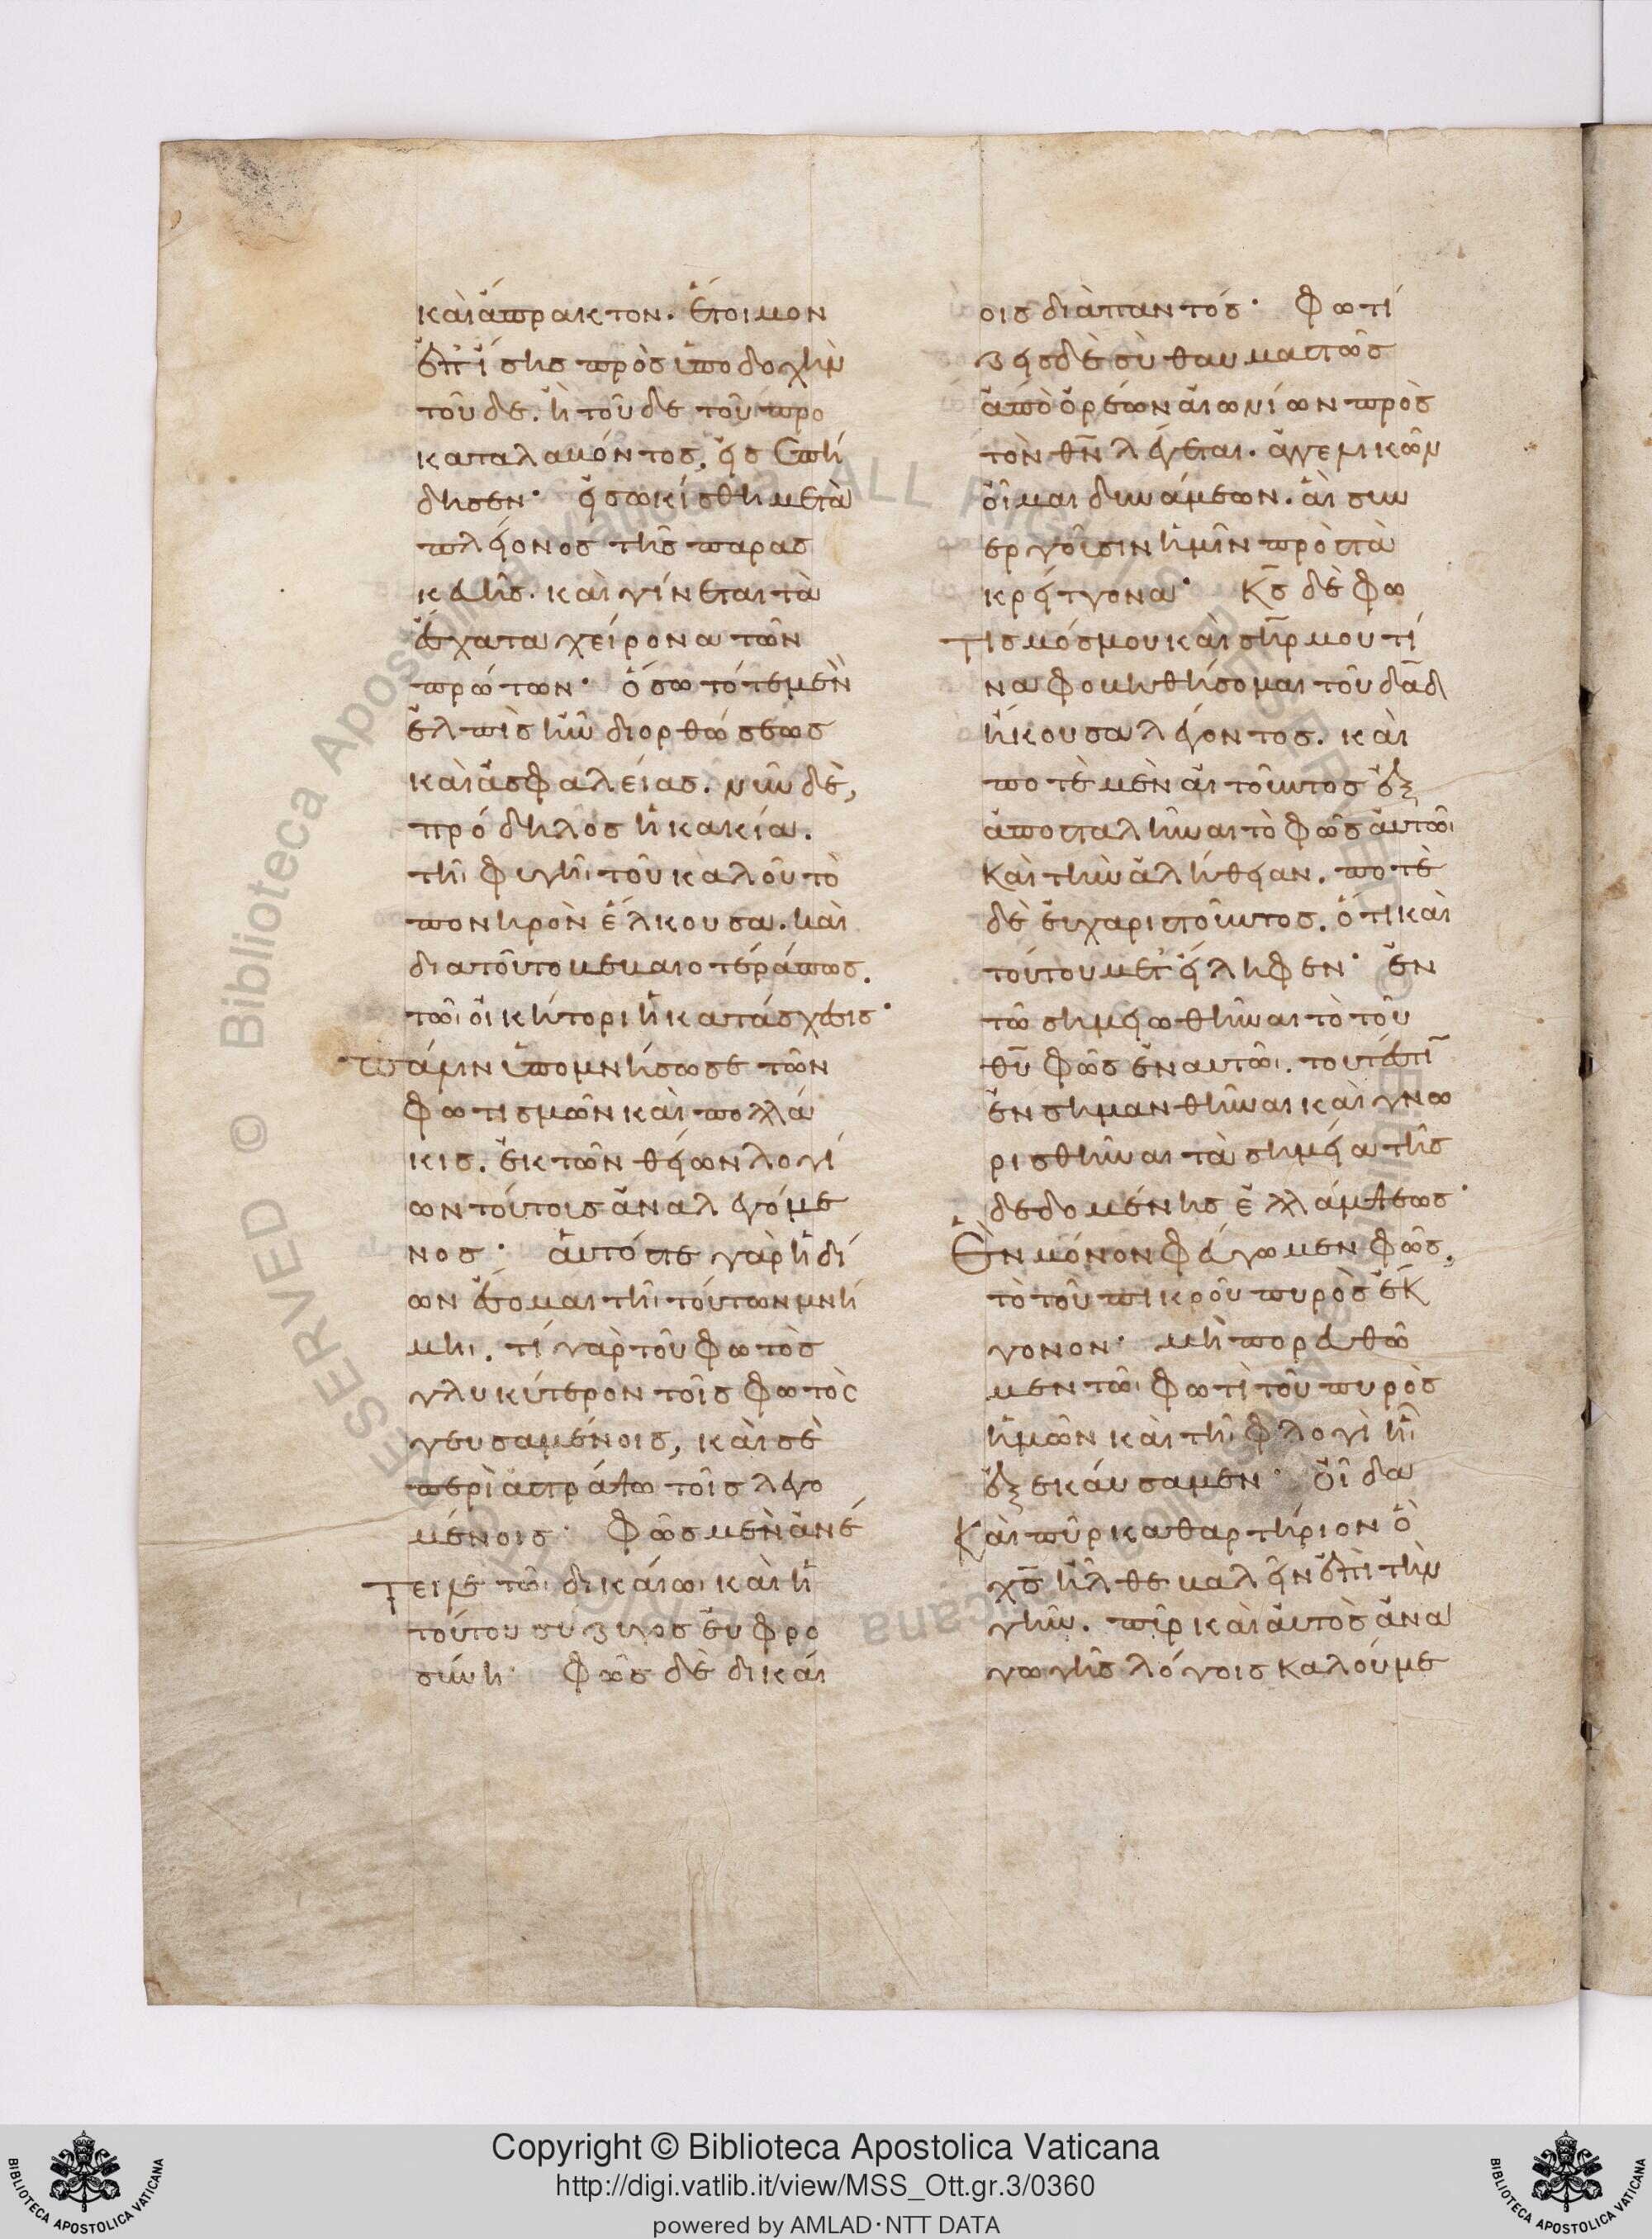 καὶ ἄπρακτον. ἕτοιμον
ἐπίσης πρὸς ὑποδοχὴν
τοῦδε. ἢ τοῦδε τοῦ προ
καταλαβόντος, εἰσεπή
δησεν· εἰσῳκίσθη μετὰ
πλείονος τῆς παρασ
κευῆς. καὶ γίνεται τὰ
ἔσχατα χείρονα τῶν
πρώτων· ὅσω τότε μὲν
ἐλπὶς ἦν διορθώσεως
καὶ ἀσφαλείας. νῦν δὲ,
πρόδηλος ἡ κακία.
τῆι φυγῆι τοῦ καλοῦ τὸ
πονηρὸν ἕλκουσα. καὶ
διατοῦτο βεβαιοτέρα πως.
τῶι οἰκήτορι ἡ κατάσχεσις·
πάλιν ὑπομνήσω σε τῶν
φωτισμῶν καὶ πολλά
κις. ἐκ τῶν θείων λογί
ων τούτοις ἀναλεγόμε
νος· αὐτός τε γὰρ ἡδί
ων ἔσομαι τῆι τούτων μνή
μηι. τί γὰρ τοῦ φωτὸς
γλυκύτερον τοῖς φωτὸς
γευσαμένοις, καὶ σὲ
περιαστράψω τοῖς λεγο
μένοις· φῶς μὲν ἀνέ
τειλε τῶι δικαίωι καὶ ἡ
τούτου σύζυγος εὐφρο
σύνη· φῶς δὲ δικαί
οις διαπαντός· φωτί
ζεις δὲ σὺ θαυμαστῶς
ἀπὸ ὀρέων αἰωνίων πρὸς
τὸν θν λέγεται. ἀγγελικῶν
οἶμαι δυνάμεων. αἳ συν
εργοῦσιν ἡμῖν πρὸς τὰ
κρείττονα· κς δὲ φω
τισμός μου καὶ σηρ μου τί
να φοβηθήσομαι τοῦ δαδ
ἤκουσα λέγοντος. καὶ
ποτὲ μὲν αἰτοῦντος ἐξ
αποσταλῆναι τὸ φῶς αὐτῶι
καὶ τὴν ἀλήθειαν. ποτὲ
δὲ εὐχαριστοῦντος. ὅτι καὶ
τούτου μετείληφεν· ἐν
τῶ σημειωθῆναι τὸ τοῦ
θυ φῶς ἐν αυτῶι. τουτέστιν
ἐν σημανθῆναι καὶ γνω
ρισθῆναι τὰ σημεῖα τῆς
δεδομένης ἐλλάμψεως·
ἓν μόνον φεύγωμεν φῶς,
τὸ τοῦ πικροῦ πυρὸς ἔκ
γονον· μὴ πορευθῶ
μεν τῶι φωτὶ τοῦ πυρὸς
ἡμῶν καὶ τῆι φλογὶ ἧι
ἐξεκαύσαμεν· οἶδα
καὶ πῦρ καθαρτήριον ὃ
χς ἦλθε βαλεῖν ἐπὶ τὴν
γῆν. πῦρ καὶ αὐτὸς ἀνα
γωγῆς λόγοις καλούμε
Copyright © Biblioteca Apostolica Vaticana
http://digi.vatlib.it/view/MSS_Ott.gr.3/0360
powered by AMLAD·NTT DATA